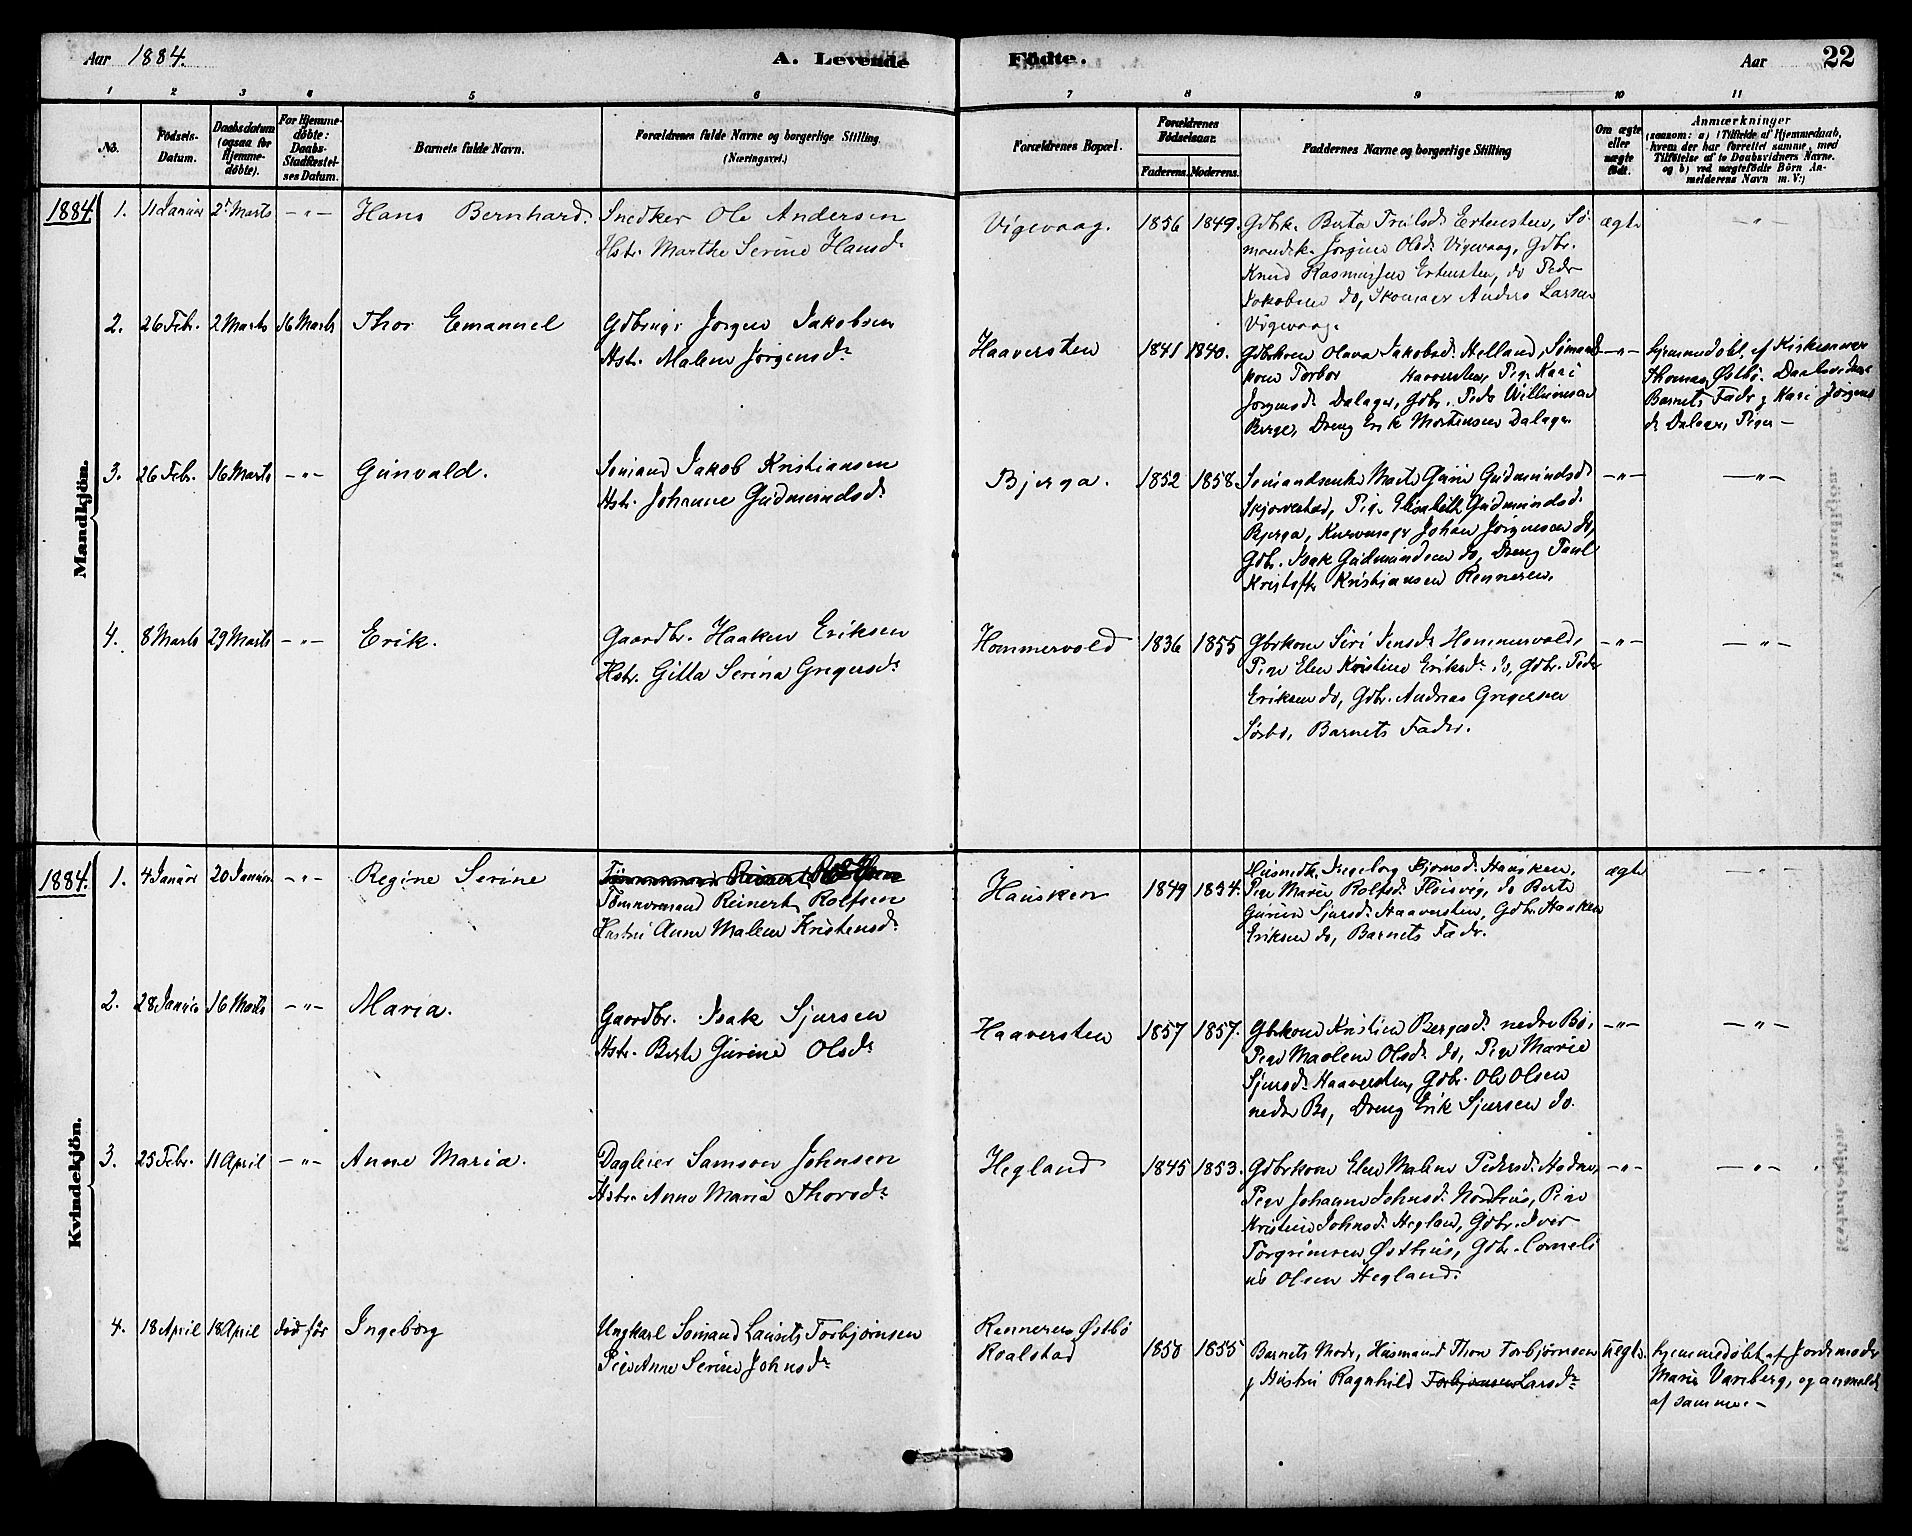 Aar 1884. A. Levende Födte. Aar 22
1 2 3 4 5 6 7 8 9 10 11
No. Födsels-Datum. Daabsdatum (ogsaa for Hjemme-döbte). For Hjemme-döbte: Daabs-Stadfæstel-ses Datum. Barnets fulde Navn. Forældrenes fulde Navne og borgerlige Stilling (Næringsvei.) Forældrenes Bopæl. Forældrenes Födselsaar. Faderens. Moderens. Faddernes Navne og borgerlige Stilling Om ægte eller uægte födt. Anmærkninger (saasom: a) i Tilfælde af Hjemmedaab, hvem der har forrettet samme, med Tilföielse af to Daabsvidners Navne. og b) ved uægtefödte Börn An-melderens Navn m. V.:)
Mandkjön.
1884 1. 11 Januar 2 Marts -"- Hans Bernhard. Snedker Ole Andersen
Hstr. Marthe Serine Hansdr
Vigevaag. 1856 1849. Gdbrk. Berta Truilsdr Ertensten, Sö-
mandsk. Jorgine Olsdr Vigevaag, Gdbr.
Knud Rasmussen Ertensten, do Peder
Jakobsen do, Skomager Anders Larsen
Vigevaag.
ægte -"-
2. 26 Febr. 2 Marts 16 Marts Thor Emanuel Jørgen Jakobsen
Hst. Malene Jørgensdr
Haaversten 1841 1840. Gdbrkone Olava Jakobsdr Helland, Sømands
kone Torbor Haaversten, Pige Kari
Jørgensdr Dalager, Gdbr. Peder Willumsen
Berge, Dreng Erik Mortensen Dalager
-"- hjemmedøbt af Kirkesanger
Thomas Østbö. Daabsvidner
Barnets Fader og Kari Jørgens
dr Dalager, Pige -
3. 26 Febr. 16 Marts -"- Gunvald. Sømand Jakob Kristiansen
Hstr. Johanne Gudmundsdr
Bjerga. 1852 1858. Marte Gurine Gudmundsdr
Skjorvestad, Pige Elisabeth Gudmundsdr
Bjerga, Johan Jørgensen do,
Gdbr. Isak Gudmundsen do, Dreng Paul
Kristofer Kristiansen Renneren.
-"- -"-
4. 8 Marts 29 Marts -"- Erik. Gaardbr. Haaken Eriksen
Hstr. Gitla Serina Gregersdr
Hommervold 1836 1855 Gbrkone Siri Jensdr Hommervold,
Pige Elen Kristine Eriksdr do, Gdbr. Peder
Eriksen do, Gdbr. Andreas Gregersen
Sørbø, Barnets Fader.
-"- -"-
Kvindekjön.
1884. 1. 4 Januar 20 Januar -"- Regine Serine Tömmermand Reinert Rolfsen
Tömmermand Reinert Rolfsen
Hustru Anne Malene Kristensdr
Hausken 1849 1854. Husmdk. Ingeborg Bjornsdr Hausken,
Pige Marie Rolfsdr Floisvig, do Berte
Gurine Sjursdr Haaversten, Gdbr. Haaken
Eriksen do, Barnets Fader.
ægte -"-
2. 28 Januar 16 Marts -"- Maria. Gaardbr. Isak Sjursen
Hstr. Berte Gurine Olsdr
Haaversten 1857 1857. Gbrkone Kristine Bergesdr nedre Bö,
Pige Maalene Olsdr do, Pige Marie
Sjursdr Haaversten, Gdbr. Ole Olsen
nedre Bö, Dreng Erik Sjursen do.
-"- -"-
3. 25 Febr. 11 April -"- Anne Maria. Dagleier Samson Johnsen
Hstr. Anne Maria Thorsdr
Hegland 1845 1853. Gdbrkone Elen Malene Pedersdr Hodne,
Pige Johanne Johnsdr Nordhus, Pige
Kristine Johnsdr Hegland, Gdbr. Iver
Torgrimsen Østhus, Gdbr. Corneli
us Olsen Hegland.
-"- -"-
4. 18 April 18 April död för Ingeborg Ungkarl Sømand Laurits Torbjørnsen
Pige Anne Serine Johnsdr
Renneren Østbö
Roalstad
1858 1855 Barnets Moder, Husmand Thore Torbjørnsen
og Hustru Ragnhild Torbjørnsen Larsdr
uægte. hjemmedøbt af Jordemoder
Marie Vareberg, og anmeldt
af samme. -